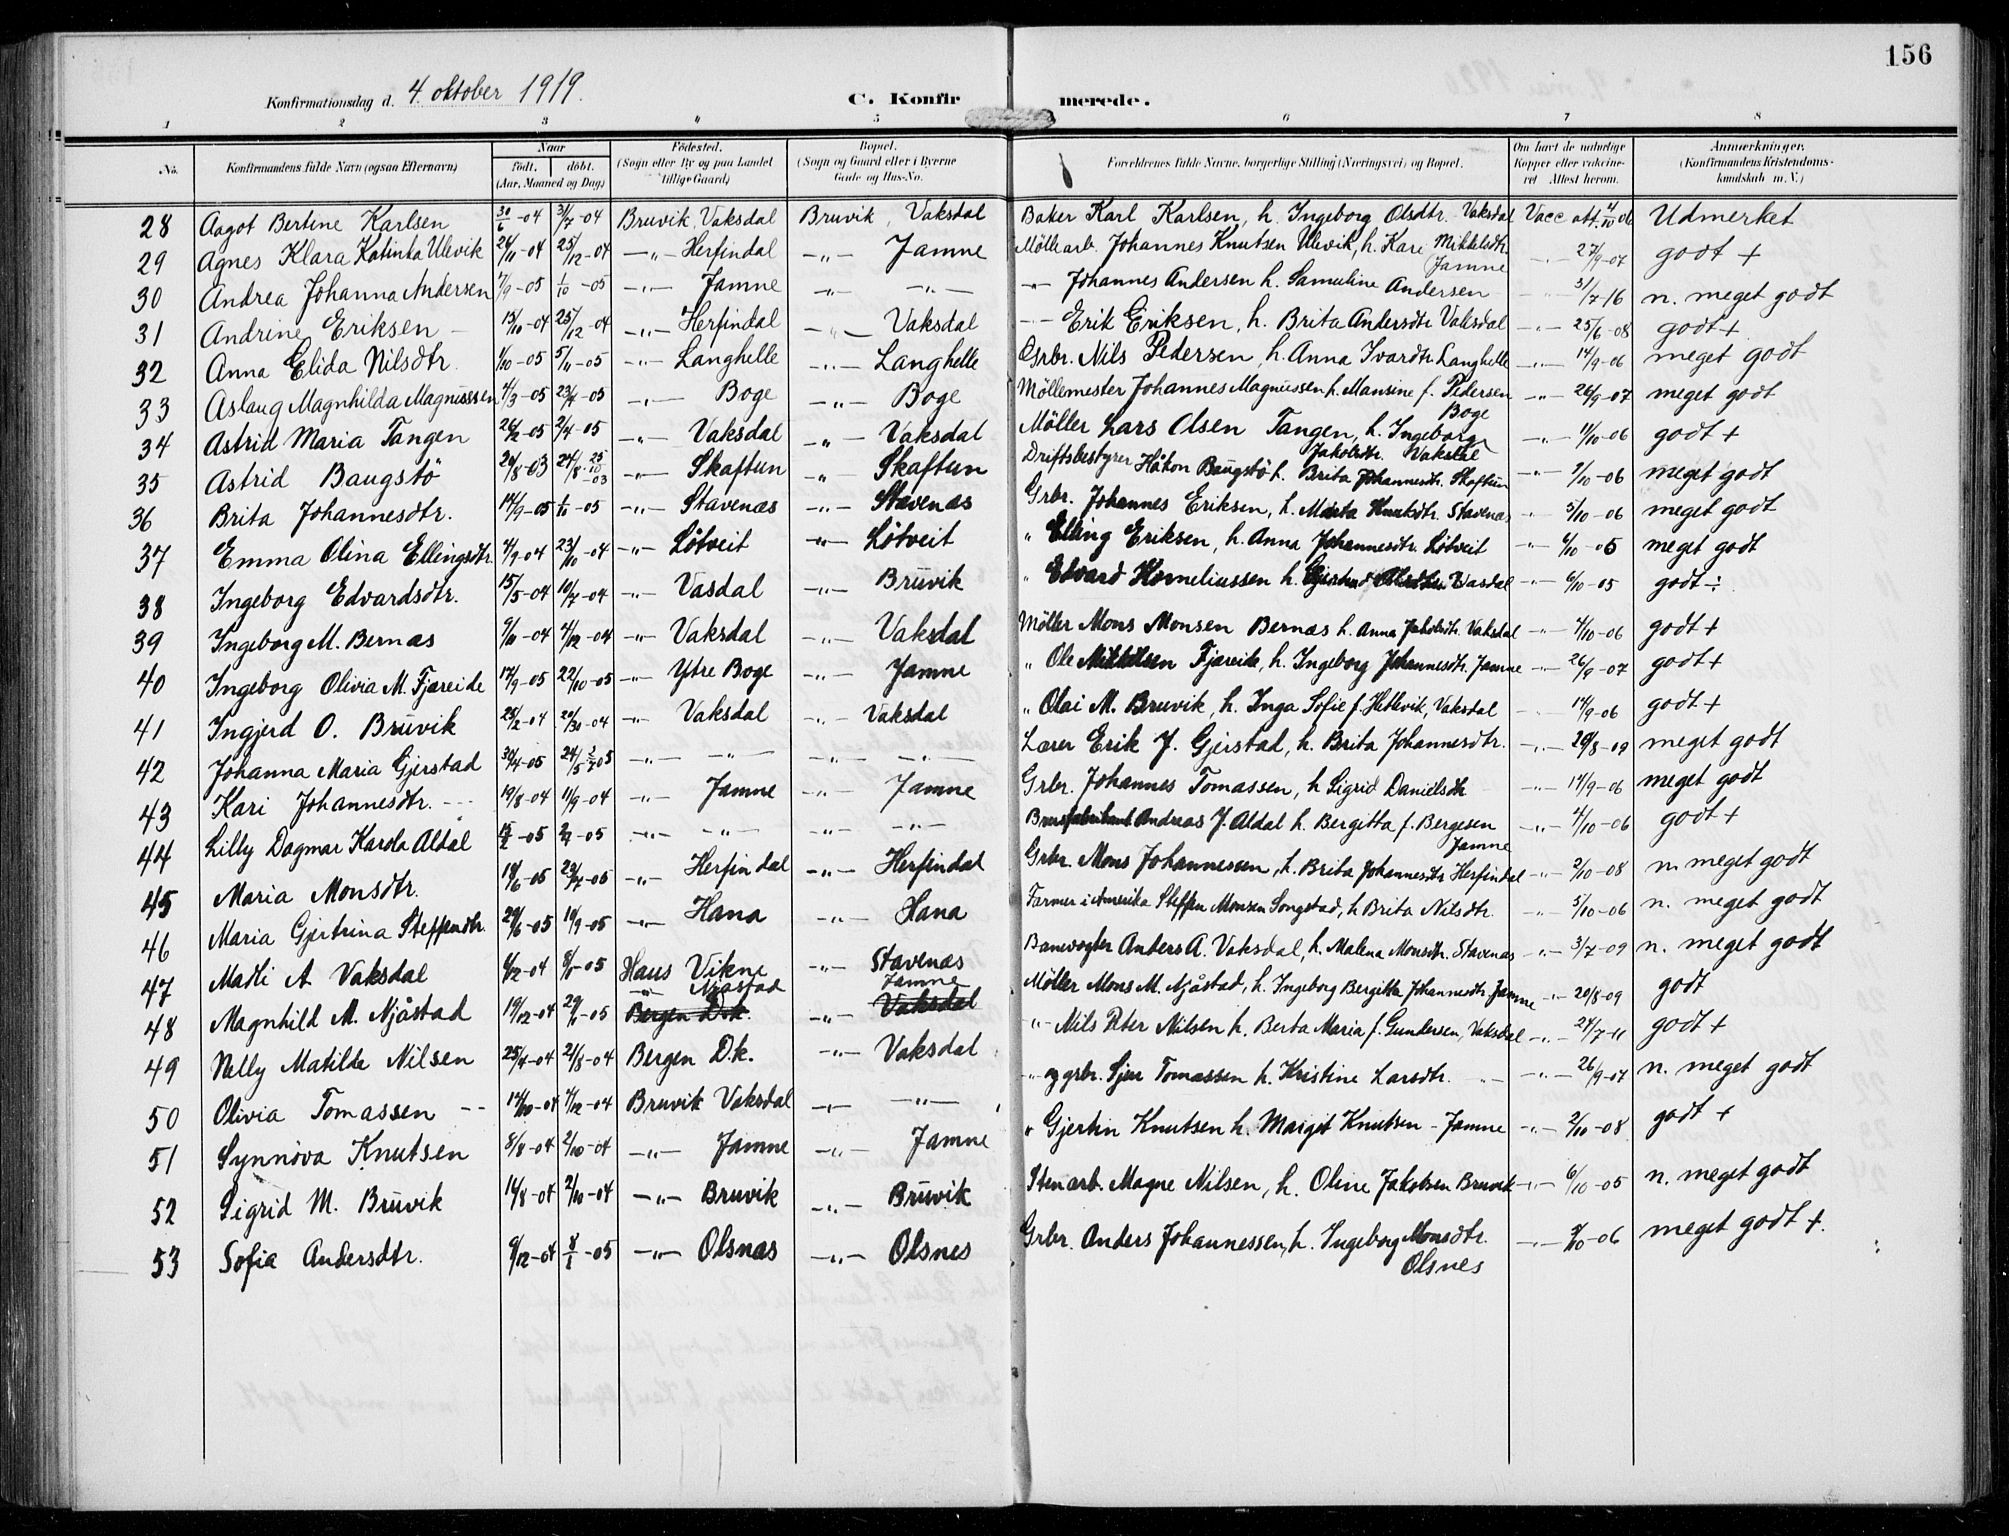 156
Konfirmationsdag d. 4. oktober 1919.
C. Konfir merede.
1 2 3 " 5 6 7 8
No. Konfirmandens fulde Navn (ogsaa Efternavn) Naar født. døbt. (Aar, Maaned og Dag) Fødested. (Sogn eller By og paa Landet tillige Gaard) Bopæl. (Sogn og Gaard eller i Byerne Gade og Hus-No. Forældrenes fulde Navne, borgerlige Stilling (Næringsvei) og Bopæl. Om havt de naturlige Kopper eller vaccineret Attest herom. Anmærkninger. (Konfirmandens Kristendomskundskab m. V.)
28 Aagot Bertine Karlsen 30/6-04 31/7-04 Bruvik, Vaksdal Bruvik, Vaksdal Baker Karl Karlsen, h. Ingeborg Olsdtr. Vaksdal Vacc att. 4/10 06 Udmerket
29 Agnes Klara Katinka Ulevik 24/11-04 25/12-04 -"- Herfindal -"- Jamne Möllearb. Johannes Knutsen Ulevik, h. Kari Mikkelsdtr. Jamne -"- 27/9-07 godt +
30 Andrea Johanna Andersen 7/9-05 1/10-05 -"- Jamne -"- -"- -"- Johannes Andersen h. Samuline Andersen -"- 31/7-16 n. meget godt
31 Andrine Eriksen 15/10-04 25/12-04 -"- Herfindal -"- Vaksdal -"- Erik Eriksen, h. Brita Andersdtr. Vaksdal -"- 25/6-08 godt +
32 Anna Elida Nilsdtr. 1/10-05 5/11-05 -"- Langhelle -"- Langhelle Grbr. Nils Pedersen, h. Anna Ivardtr. Langhelle -"- 14/9-06 meget godt
33 Aslaug Magnhilda Magnussen 4/3-05 23/4-05 -"- Boge -"- Boge Möllemester Johannes Magnussen h. Mansine f. Pedersen Boge -"- 26/9-07 meget godt
34 Astrid Maria Tangen 26/2-05 2/4-05 -"- Vaksdal -"- Vaksdal Möller Lars Olsen Tangen, h. Ingeborg Jakobsdtr. Vaksdal -"- 11/10-06 godt +
35 Astrid Baugstö 24/8-03 24/8-25/10-03 -"- Skaftun -"- Skaftun Driftsbestyrer Håkon Baugstö h. Brita Johannesdtr. Skaftun -"- 9/10-06 meget godt
36 Brita Johannesdtr. 14/9-05 1/10-05 -"- Stavenæs -"- Stavenæs Grbr. Johannes Eriksen, h. Marta Knutsdtr. Stavenæs -"- 5/10-06 meget godt
37 Emma Olina Ellingsdtr. 4/9-04 23/10-04 -"- Lötveit -"- Lötveit " Elling Eriksen, h. Anna Johannesdtr. Lötveit -"- 6/10-05 meget godt
38 Ingeborg Edvardsdtr. 15/5-04 10/7-04 -"- Vasdal -"- Bruvik " Edvard Korneliussen h. Gjertrud Olsdtr. Vasdal -"- 6/10-05 godt ÷
39 Ingeborg M. Bernæs 9/11-04 4/12-04 -"- Vaksdal -"- Vaksdal Möller Mons Monsen Bernæs h. Anna Jakobsdtr. Vaksdal -"- 4/10-06 godt +
40 Ingeborg Olivia M. Fjæreide 17/9-05 22/10-05 -"- Ytre Boge -"- Jamne " Ole Mikkelsen Fjæreide, h. Ingeborg Johannesdtr. Jamne -"- 26/9-07 godt +
41 Ingjerd O. Bruvik 25/2-04 20/30-04 -"- Vaksdal -"- Vaksdal " Olai M. Bruvik, h. Inga Sofie f. Hetlevik, Vaksdal -"- 14/9-06 godt +
42 Johanna Maria Gjerstad 30/4-05 24/5 2/7 05 -"- -"- -"- -"- Lærer Erik J. Gjerstad, h. Brita Johannesdtr. -"- 20/8-09 meget godt
43 Kari Johannesdtr. 19/8-04 11/9-04 -"- Jamne -"- Jamne Grbr. Johannes Tomassen, h Sigrid Danielsdtr -"- 14/9-06 meget godt
44 Lilly Dagmar Karola Aldal -05 -05 -"- -"- -"- -"- Andreas J. Aldal h. Bergitta f. Bergesen Jamne -"- 4/10-06 godt +
45 Maria Monsdtr. 18/6-05 23/7-05 -"- Herfindal -"- Herfindal Grbr. Mons Johannessen, h. Brita Johannesdtr Herfindal -"- 2/10-08 n. meget godt
46 Maria Gjertrina Steffendtr. 29/6-05 10/9-05 -"- Hana -"- Hana Farmer i Amerika Steffen Monsen Songstad, h Brita Nilsdtr. -"- 5/10-06 n. meget godt
47 Madli A Vaksdal 6/12-04 8/1-05 Haus Vikne -"- Stavenæs Banevogter Anders A. Vaksdal, h. Malena Monsdtr. Stavenæs -"- 3/7-09 n. meget godt
48 Magnhild M. Njåstad 19/12-04 29/1-05 -"- Njåstad Bergen D.k. -"- Jamne Vaksdal Möller Mons M. Njåstad, h. Ingeborg Bergitta Johannesdtr. Jamne -"- 20/8-09 godt
49 Nelly Matilde Nilsen 25/4-04 21/8-04 Bergen D.k. -"- Vaksdal "- Nils Peter Nilsen h. Berta Maria f. Gundersen, Vaksdal -"- 24/7-11 godt +
50 Olivia Tomassen 14/10-04 4/12-04 Bruvik Vaksdal -"- -"- -"- og grbr. Sjur Tomassen h. Kristine Larsdtr. -"- -"- 26/9-07 n. meget godt
51 Synnöva Knutsen 8/8-04 2/10-04 -"- Jamne -"- Jamne " Gjertin Knutsen h. Margit Knutsen - Jamne -"- 2/10-08 godt +
52 Sigrid M. Bruvik 14/8-04 2/10-04 -"- Bruvik -"- Bruvik Stenarb. Magne Nilsen, h. Oline Jakobsen Bruvik -"- 6/10-05 n. meget godt
53 Sofia Andersdtr. 9/12-04 8/1-05 -"- Olsnæs -"- Olsnes Grbr. Anders Johannessen, h. Ingeborg Monsdtr. Olsnes -"- /10-06 meget godt +.